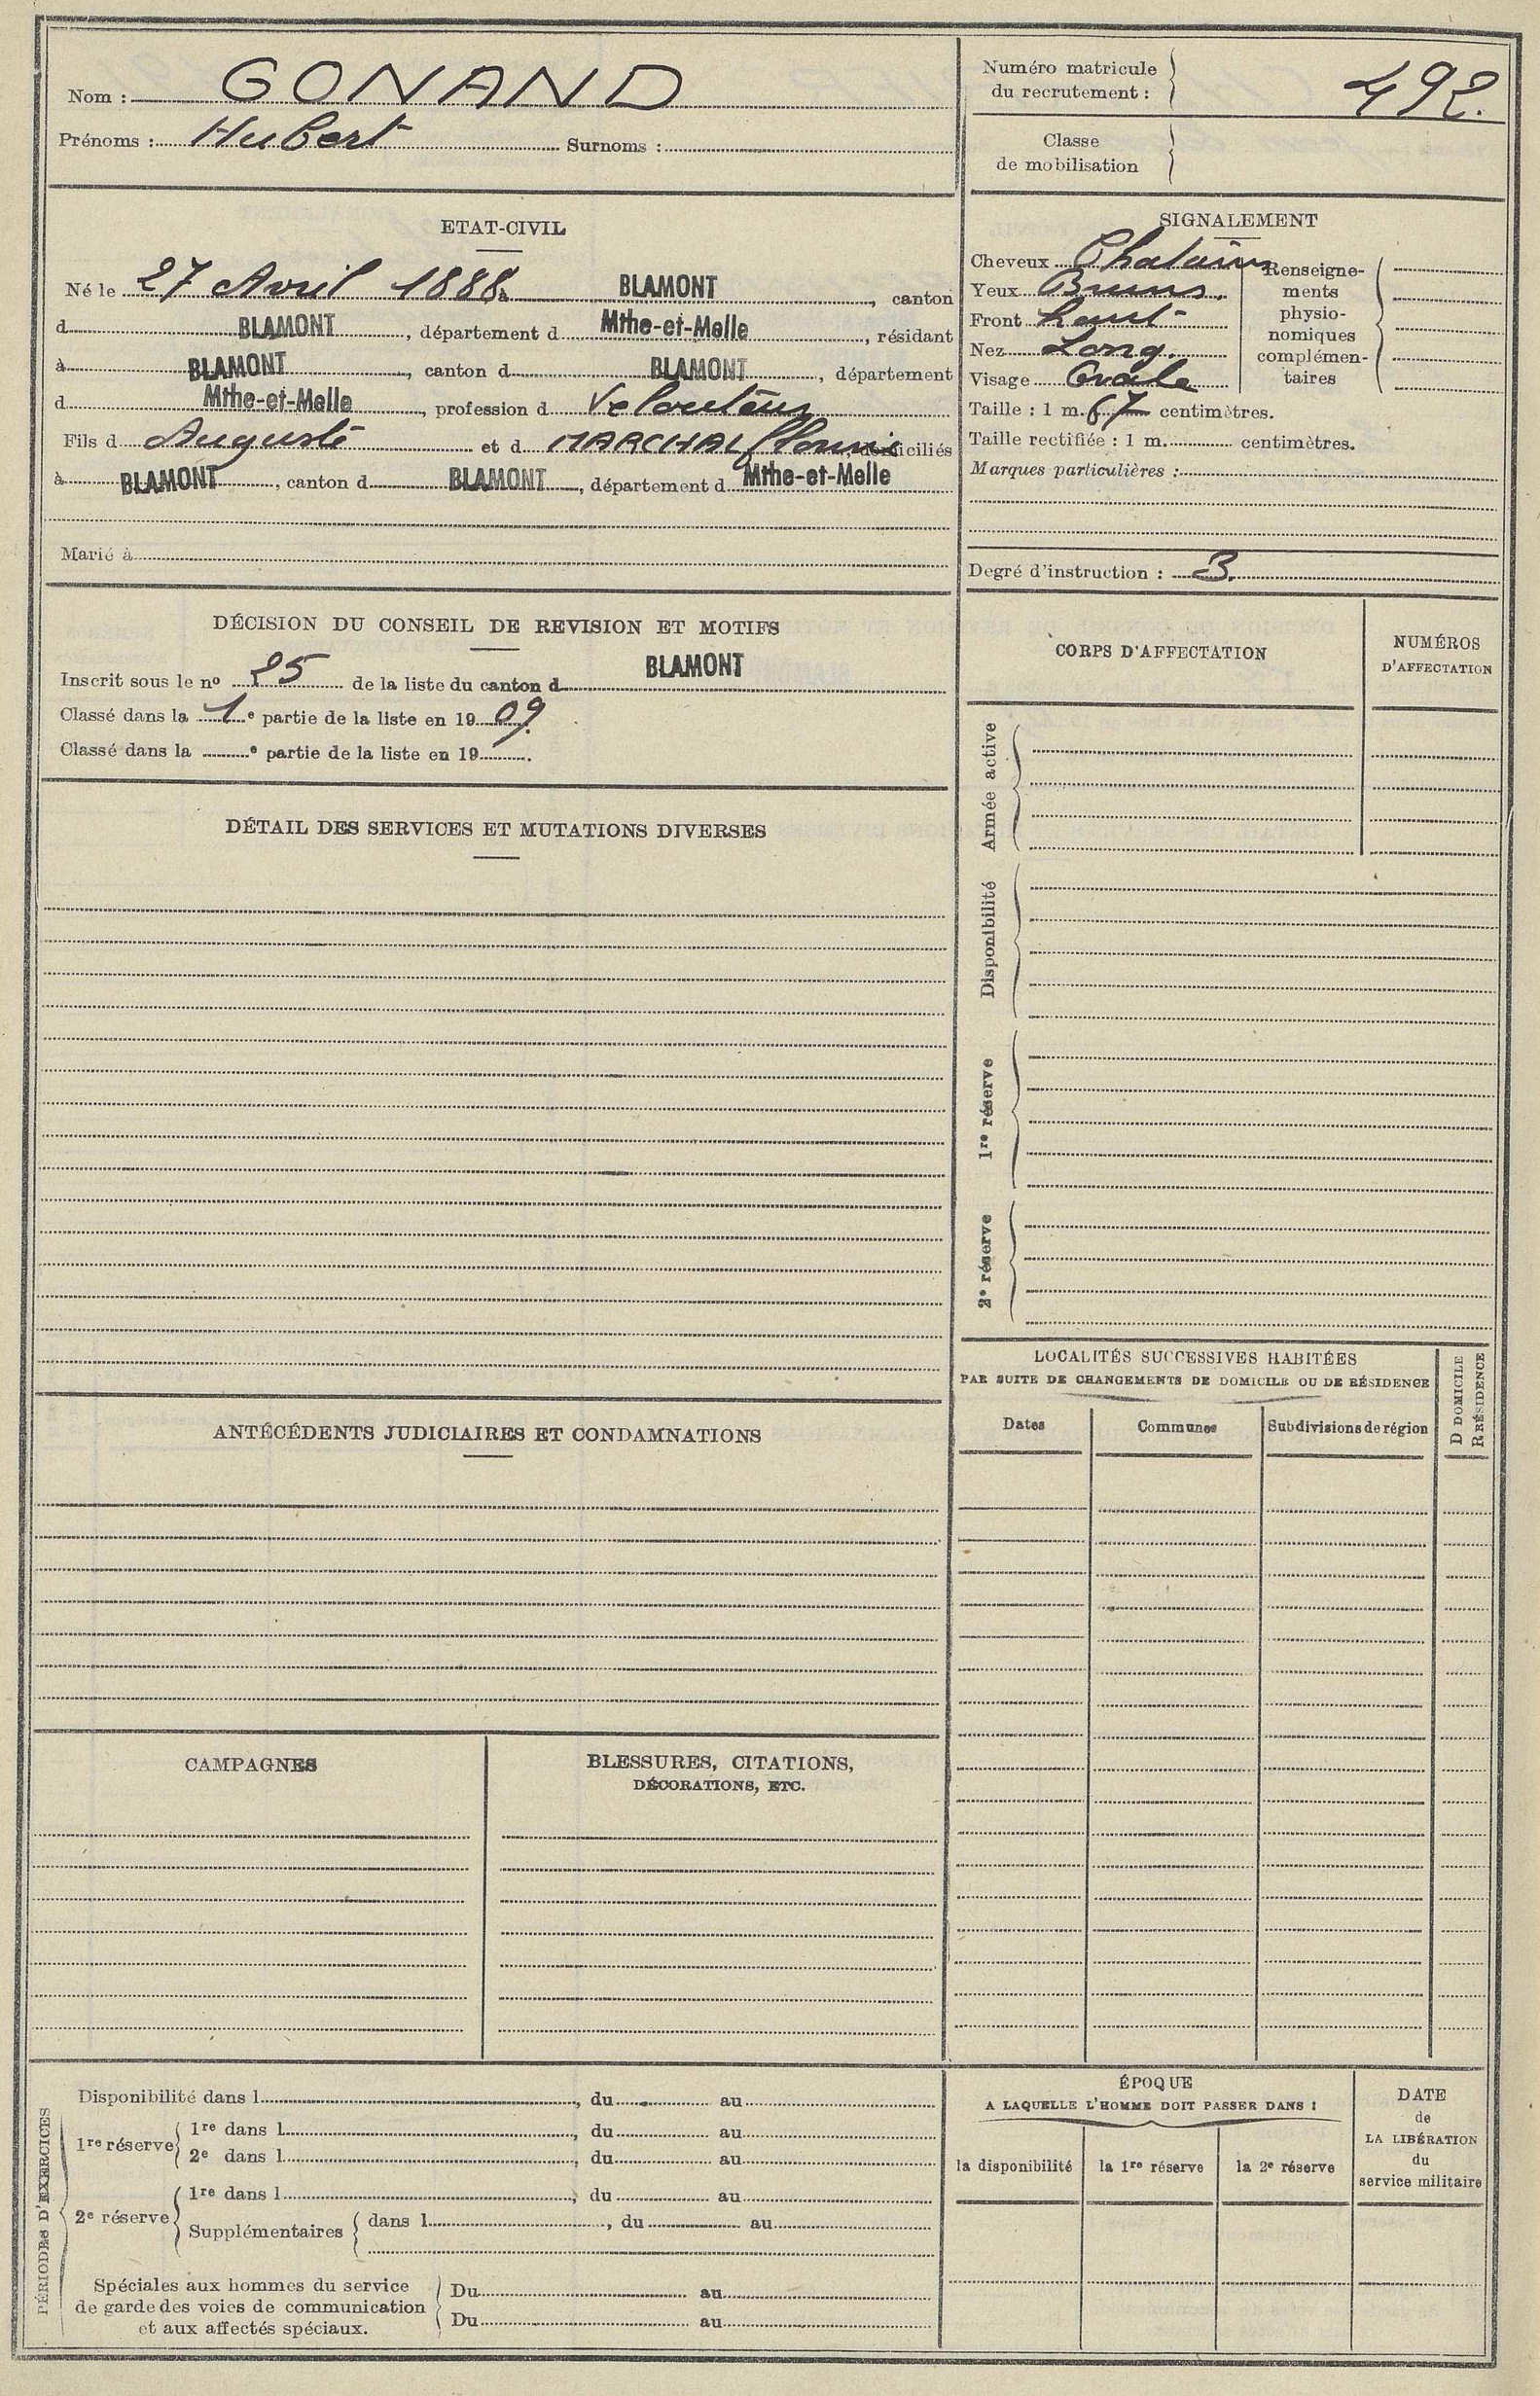 Nom : GONAND
Prénoms : Hubert Surnoms :
Numéro matricule
du recrutement : 492.
Classe
de mobilisation
ETAT-CIVIL
Né le 27 Avril 1888 à BLAMONT, canton
d BLAMONT, département d Mthe-et-Melle, résidant
à BLAMONT, canton d BLAMONT, département
d Mthe-et-Melle, profession d Velouteur
Fils d Auguste et d MARCHAL domiciliés
à BLAMONT, canton d BLAMONT, département d Mthe-et-Melle
Marié à
SIGNALEMENT
Cheveux Chatains
Yeux Bruns.
Front haut
Nez Long.
Visage Ovale
Renseigne-
ments
physio-
nomiques
complémen-
taires
Taille : 1 m. 67 centimètres.
Taille rectifiée : 1 m. centimètres.
Marques particulières :
Degré d'instruction : 3.
DÉCISION DU CONSEIL DE REVISION ET MOTIFS
Inscrit sous le nº 25 de la liste du canton d BLAMONT
Classé dans la 1e partie de la liste en 1909.
Classé dans la e partie de la liste en 19 .
DÉTAIL DES SERVICES ET MUTATIONS DIVERSES
CORPS D'AFFECTATION
NUMÉROS
D'AFFECTATION
Armée active
Disponibilité
1re réserve
2e réserve
ANTÉCÉDENTS JUDICIAIRES ET CONDAMNATIONS
LOCALITÉS SUCCESSIVES HABITÉES
PAR SUITE DE CHANGEMENTS DE DOMICILE OU DE RÉSIDENCE
D DOMICILE
R RÉSIDENCE
Dates Communes Subdivisions de région
CAMPAGNES
BLESSURES, CITATIONS,
DÉCORATIONS, ETC.
PÉRIODES D'EXERCICES
Disponibilité dans l , du au
1re réserve
1re dans l , du au
2e dans l , du au
2e réserve
1re dans l , du au
Supplémentaires dans l , du au
Spéciales aux hommes du service
de garde des voies de communication
et aux affectés spéciaux.
Du au
Du au
ÉPOQUE
A LAQUELLE L'HOMME DOIT PASSER DANS :
la disponibilité la 1re réserve la 2e réserve
DATE
de
LA LIBÉRATION
du
service militaire